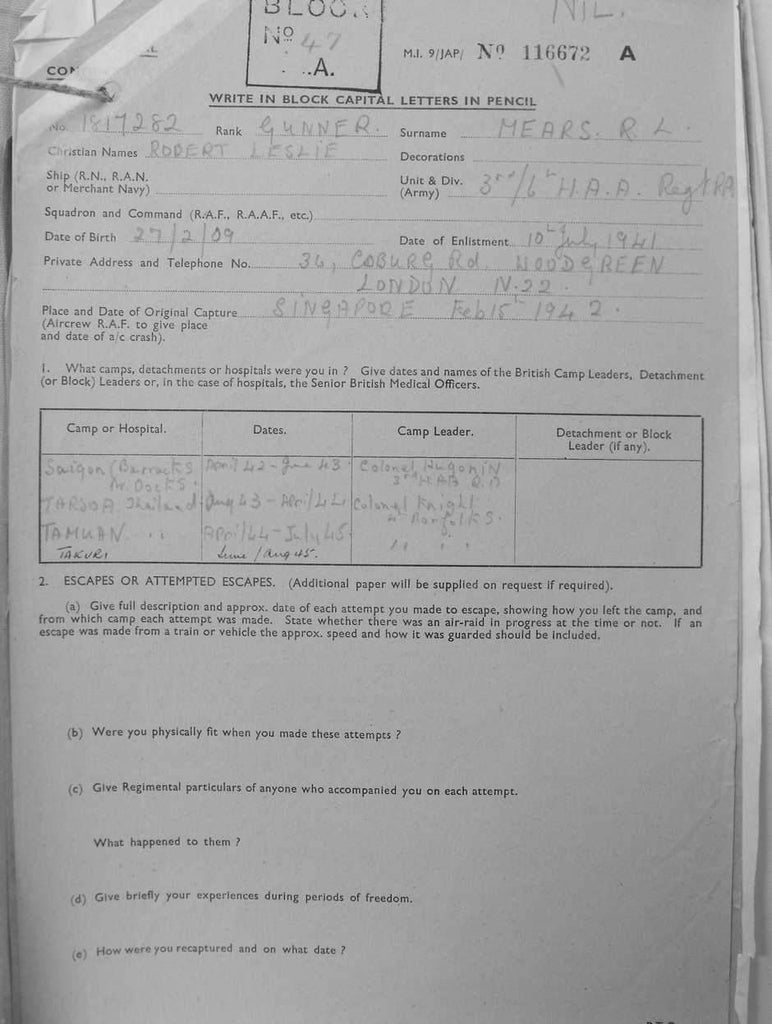 BLOCK
NIL.
Nº 47
.A.
M.I. 9/JAP/ Nº 116672 A
WRITE IN BLOCK CAPITAL LETTERS IN PENCIL
No. 1817282 Rank GUNNER. Surname MEARS. R L.
Christian Names ROBERT LESLIE Decorations
Ship (R.N., R.A.N. or Merchant Navy) Unit & Div. (Army) 3rd/6th H.A.A. Regt RA
Squadron and Command (R.A.F., R.A.A.F., etc.)
Date of Birth 27/2/09 Date of Enlistment 10th July 1941
Private Address and Telephone No. 36, COBURG Rd. WOODGREEN
LONDON N.22.
Place and Date of Original Capture SINGAPORE Feb 15th 1942.
(Aircrew R.A.F. to give place
and date of a/c crash).
1. What camps, detachments or hospitals were you in ? Give dates and names of the British Camp Leaders, Detachment
(or Block) Leaders or, in the case of hospitals, the Senior British Medical Officers.
Camp or Hospital. Dates. Camp Leader. Detachment or Block
Leader (if any).
Saigon (Barracks April 42 - June 43. Colonel Hugonin
Nr. Docks. 3rd HAA R.A
TARSOA Thailand Aug 43 - April 44 Colonel Knight
Norfolks.
TAMUAN. " " April 44 - July 45 " " "
TAKURI June / Aug 45.
2. ESCAPES OR ATTEMPTED ESCAPES. (Additional paper will be supplied on request if required).
(a) Give full description and approx. date of each attempt you made to escape, showing how you left the camp, and
from which camp each attempt was made. State whether there was an air-raid in progress at the time or not. If an
escape was made from a train or vehicle the approx. speed and how it was guarded should be included.
(b) Were you physically fit when you made these attempts ?
(c) Give Regimental particulars of anyone who accompanied you on each attempt.
What happened to them ?
(d) Give briefly your experiences during periods of freedom.
(e) How were you recaptured and on what date ?